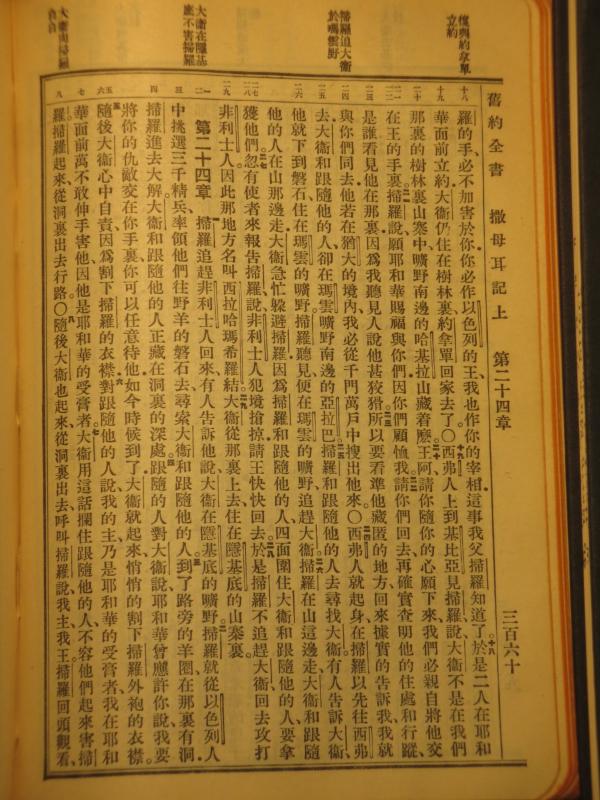 復與約拿單
立約
掃羅追大衞
於瑪雲野
大衞在隱基
底不害掃羅
舊約全書 撒母耳記上 第二十四章 三百六十
十八 羅的手必不加害於你你必作以色列的王我也作你的宰相這事我父掃羅知道了於是二人在耶和
十九 華面前立約大衞仍住在樹林裏約拿單回家去了〇西弗人上到基比亞見掃羅說大衞不是在我們
二十 那裏的樹林裏山寨中曠野南邊的哈基拉山藏着麽王阿請你隨你的心願下來我們必親自將他交
二一 在王的手裏掃羅說願耶和華賜福與你們因你們顧恤我請你們回去再確實查明他的住處和行蹤
二三 是誰看見他在那裏因爲我聽見人說他甚狡猾所以要看準他藏匿的地方回來據實的告訴我我就
二四 與你們同去他若在猶大的境內我必從千門萬戶中搜出他來〇西弗人就起身在掃羅以先往西弗
二五 去大衞和跟隨他的人卻在瑪雲曠野南邊的亞拉巴掃羅和跟隨他的人去尋找大衞有人告訴大衞
二六 他就下到磐石住在瑪雲的曠野掃羅聽見便在瑪雲的曠野追趕大衞掃羅在山這邊走大衞和跟隨
他的人在山那邊走大衞急忙躲避掃羅因爲掃羅和跟隨他的人四面圍住大衞和跟隨他的人要拿
二七 二八 獲他們忽有使者來報告掃羅說非利士人犯境搶掠請王快快回去於是掃羅不追趕大衞回去攻打
二九 非利士人因此那地方名叫西拉哈瑪希羅結大衞從那裏上去住在隱基底的山寨裏
一 二 第二十四章 掃羅追趕非利士人回來有人告訴他說大衞在隱基底的曠野掃羅就從以色列人
三 中挑選三千精兵率領他們往野羊的磐石去尋索大衞和跟隨他的人到了路旁的羊圈在那裏有洞
四 掃羅進去大解大衞和跟隨他的人正藏在洞裏的深處跟隨的人對大衞說耶和華曾應許你說我要
將你的仇敵交在你手裏你可以任意待他如今時候到了大衞就起來悄悄的割下掃羅外袍的衣襟
五 六 隨後大衞心中自責因爲割下掃羅的衣襟對跟隨他的人說我的主乃是耶和華的受膏者我在耶和
七 華面前萬不敢伸手害他因他是耶和華的受膏者大衞用這話攔住跟隨他的人不容他們起來害掃
八 羅掃羅起來從洞裏出去行路〇隨後大衞也起來從洞裏出去呼叫掃羅說我主我王掃羅回頭觀看